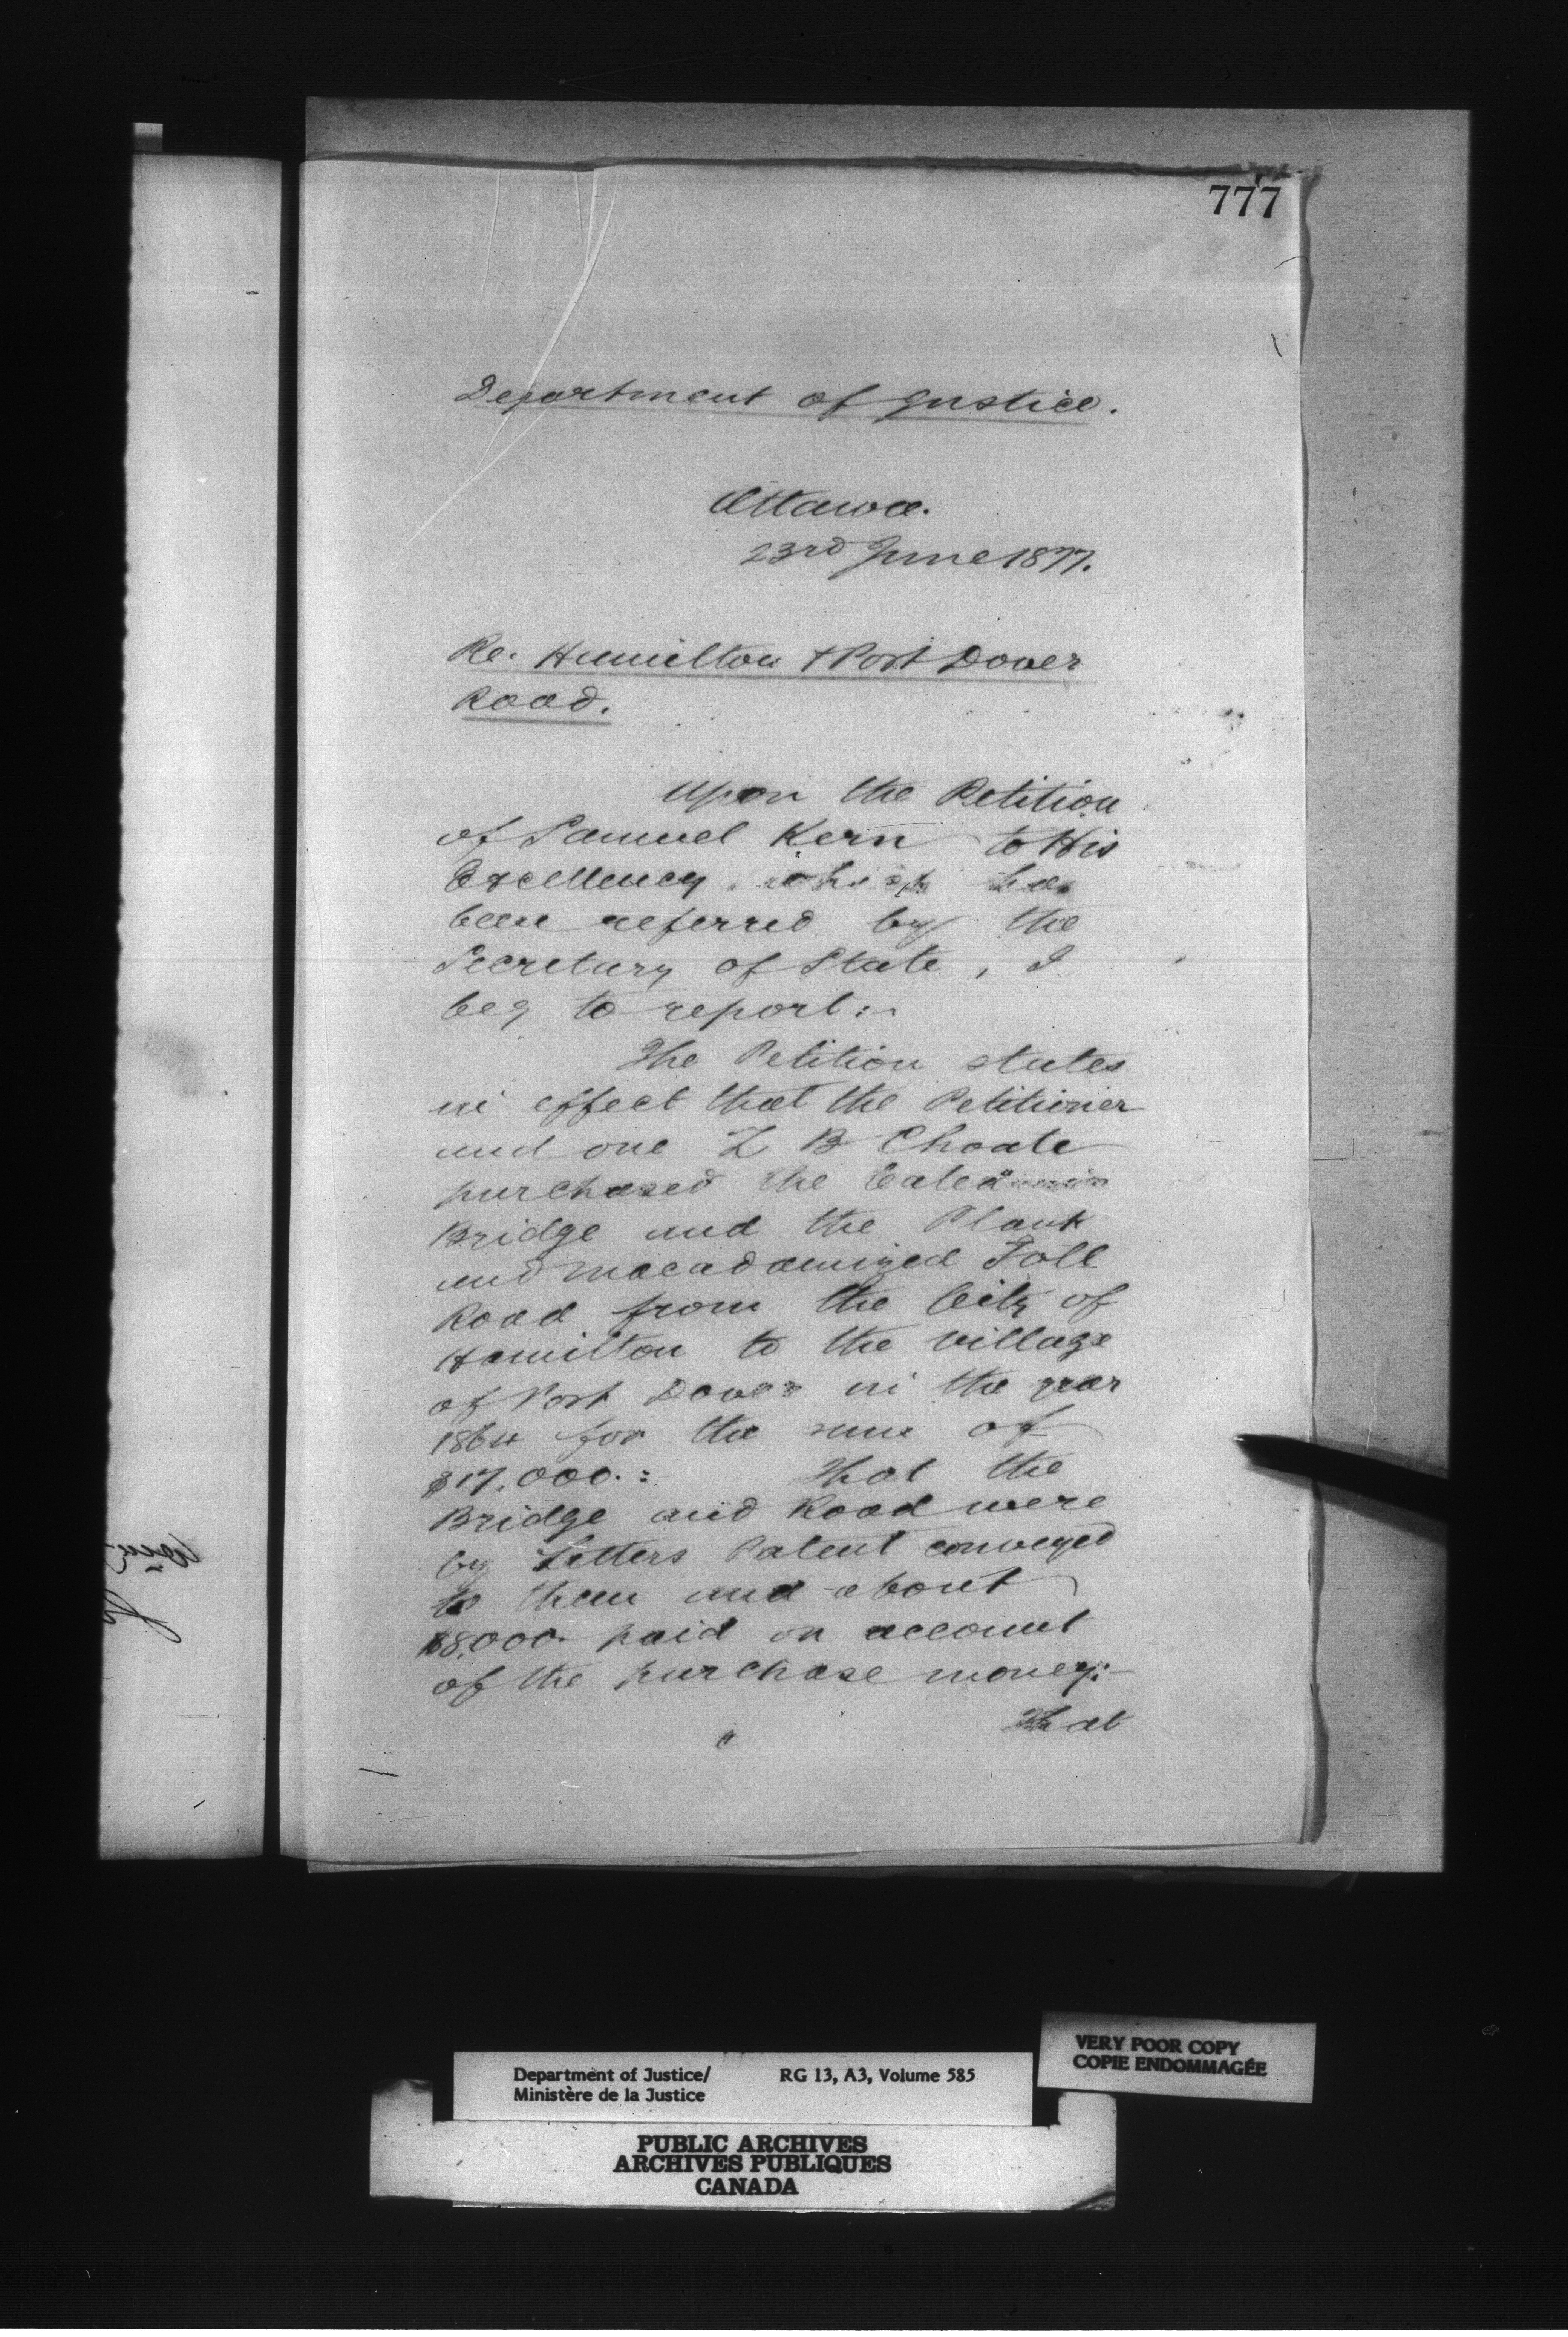 777
Department of Justice.
Ottawa.
23rd June 1877.
Re. Hamilton & Port Dover
Road.
Upon the Petition
of Samuel Kern to His
Excellency which has
been referred by the
Secretary of State, I
beg to report:-
The Petition states
in effect that the Petitioner
and one Z B Choate
purchased the Caledonia
Bridge and the Plank
and macadamized Toll
Road from the City of
Hamilton to the village
of Port Dover in the year
1864 for the sum of
$17,000.: That the
Bridge and Road were
by Letters Patent conveyed
to them and about
$8,000 paid on account
of the purchase money:-
That
Department of Justice/ RG 13, A3, Volume 585
Ministère de la Justice
VERY POOR COPY
COPIE ENDOMMAGÉE
PUBLIC ARCHIVES
ARCHIVES PUBLIQUES
CANADA